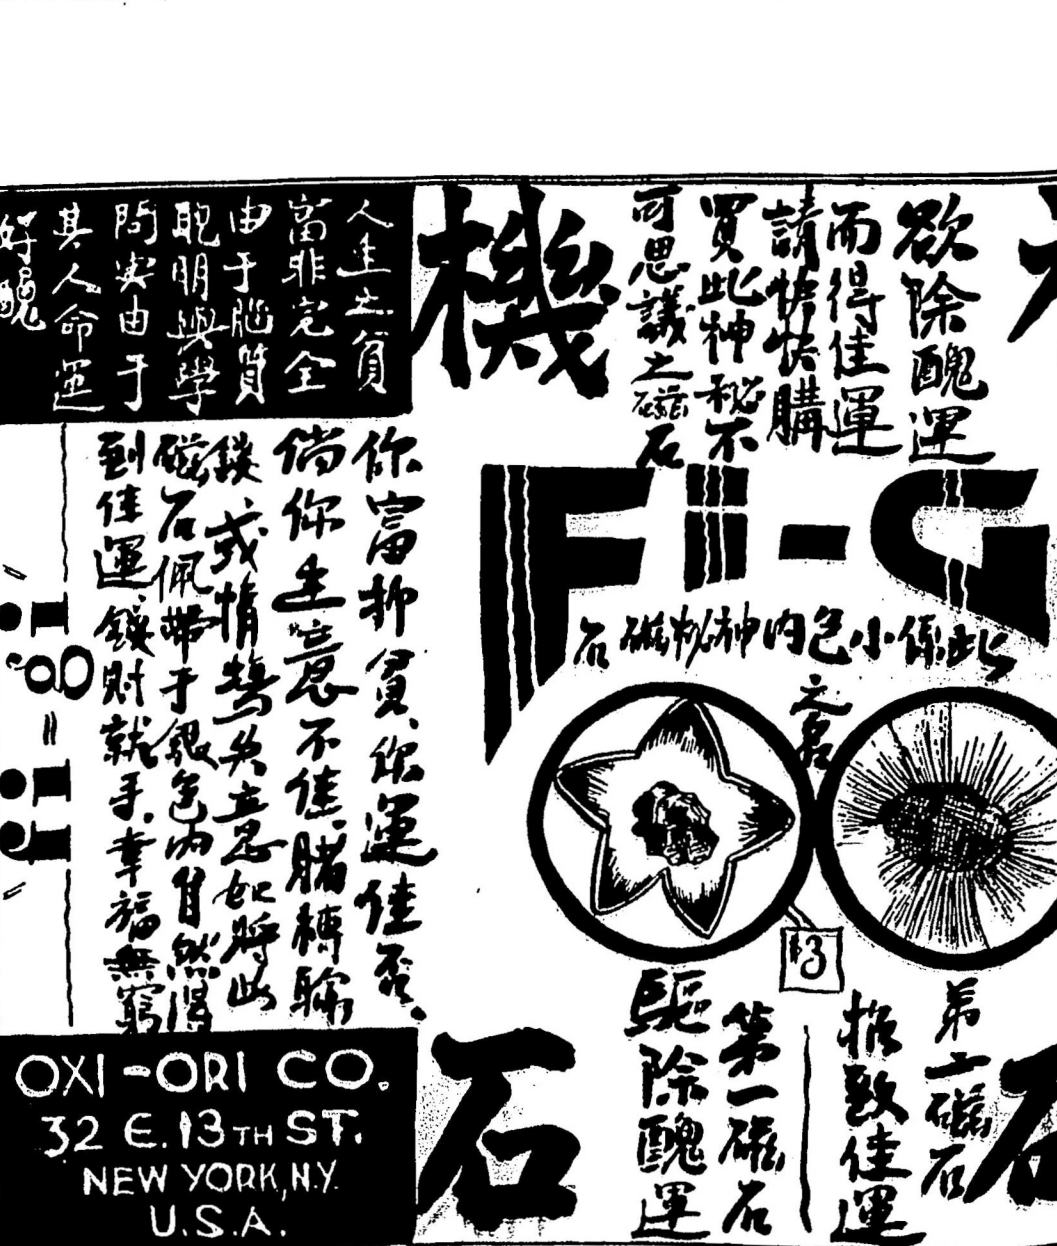 欲除醜運
而得佳運
請快快購
買此神秘不
可思議之磁石
機
石
FI-G
此係小包內神秘磁石
之名
$3
第二磁石
致佳運
第一磁石
驅除醜運
人生之貧
富非完全
由于腦質
聰明與學
問实由于
其人命運
好醜
你富抑貧、你運佳否、
倘你生意不佳、賭搏輸
錢或情鴛失意如將此
磁石佩帶于銀包內自然得
到佳運、錢財就手、幸福無窮
OXI-ORI CO.
32 E. 13TH ST.
NEW YORK, N.Y.
U.S.A.